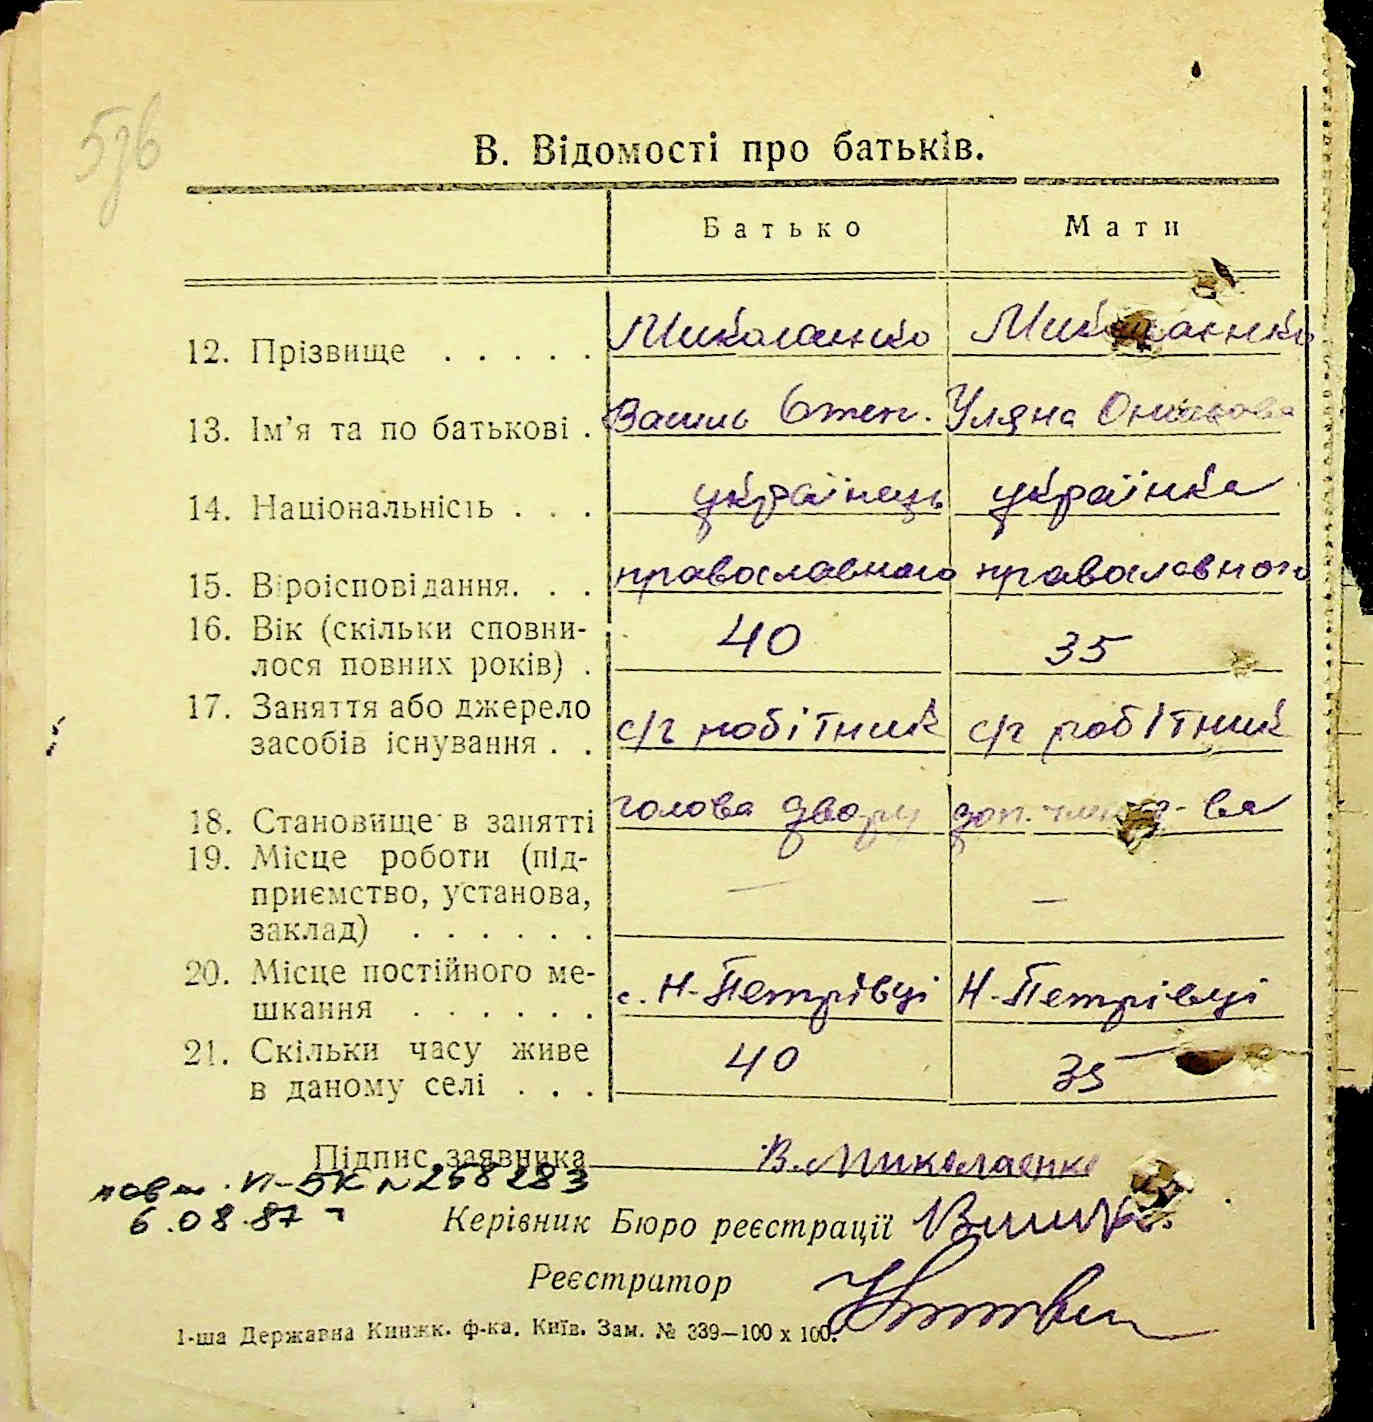 В. Відомості про батьків.
Батько Мати
12. Прізвище . . . . . Миколаєнко Миколаєнко
13. Ім’я та по батькові . Василь Степ. Уляна
14. Національність . . . українець українка
15. Віроісповідання. . . православного православного
16. Вік (скільки сповни-
лося повних років) . 40 35
17. Заняття або джерело
засобів існування . . с/г робітник с/г робітник
18. Становище в занятті голова двору доп.
19. Місце роботи (під-
приємство, установа,
заклад) . . . . . . — —
20. Місце постійного ме-
шкання . . . . . . с. Н-Петрівці Н-Петрівці
21. Скільки часу живе
в даному селі . . . 40 35
Підпис заявника В. Миколаенко
повт. VI-БК № 258283
6.08.87 г
Керівник Бюро реєстрації
Реєстратор
1-ша Державна Книжк. ф-ка. Київ. Зам. № 339—100 х 100.